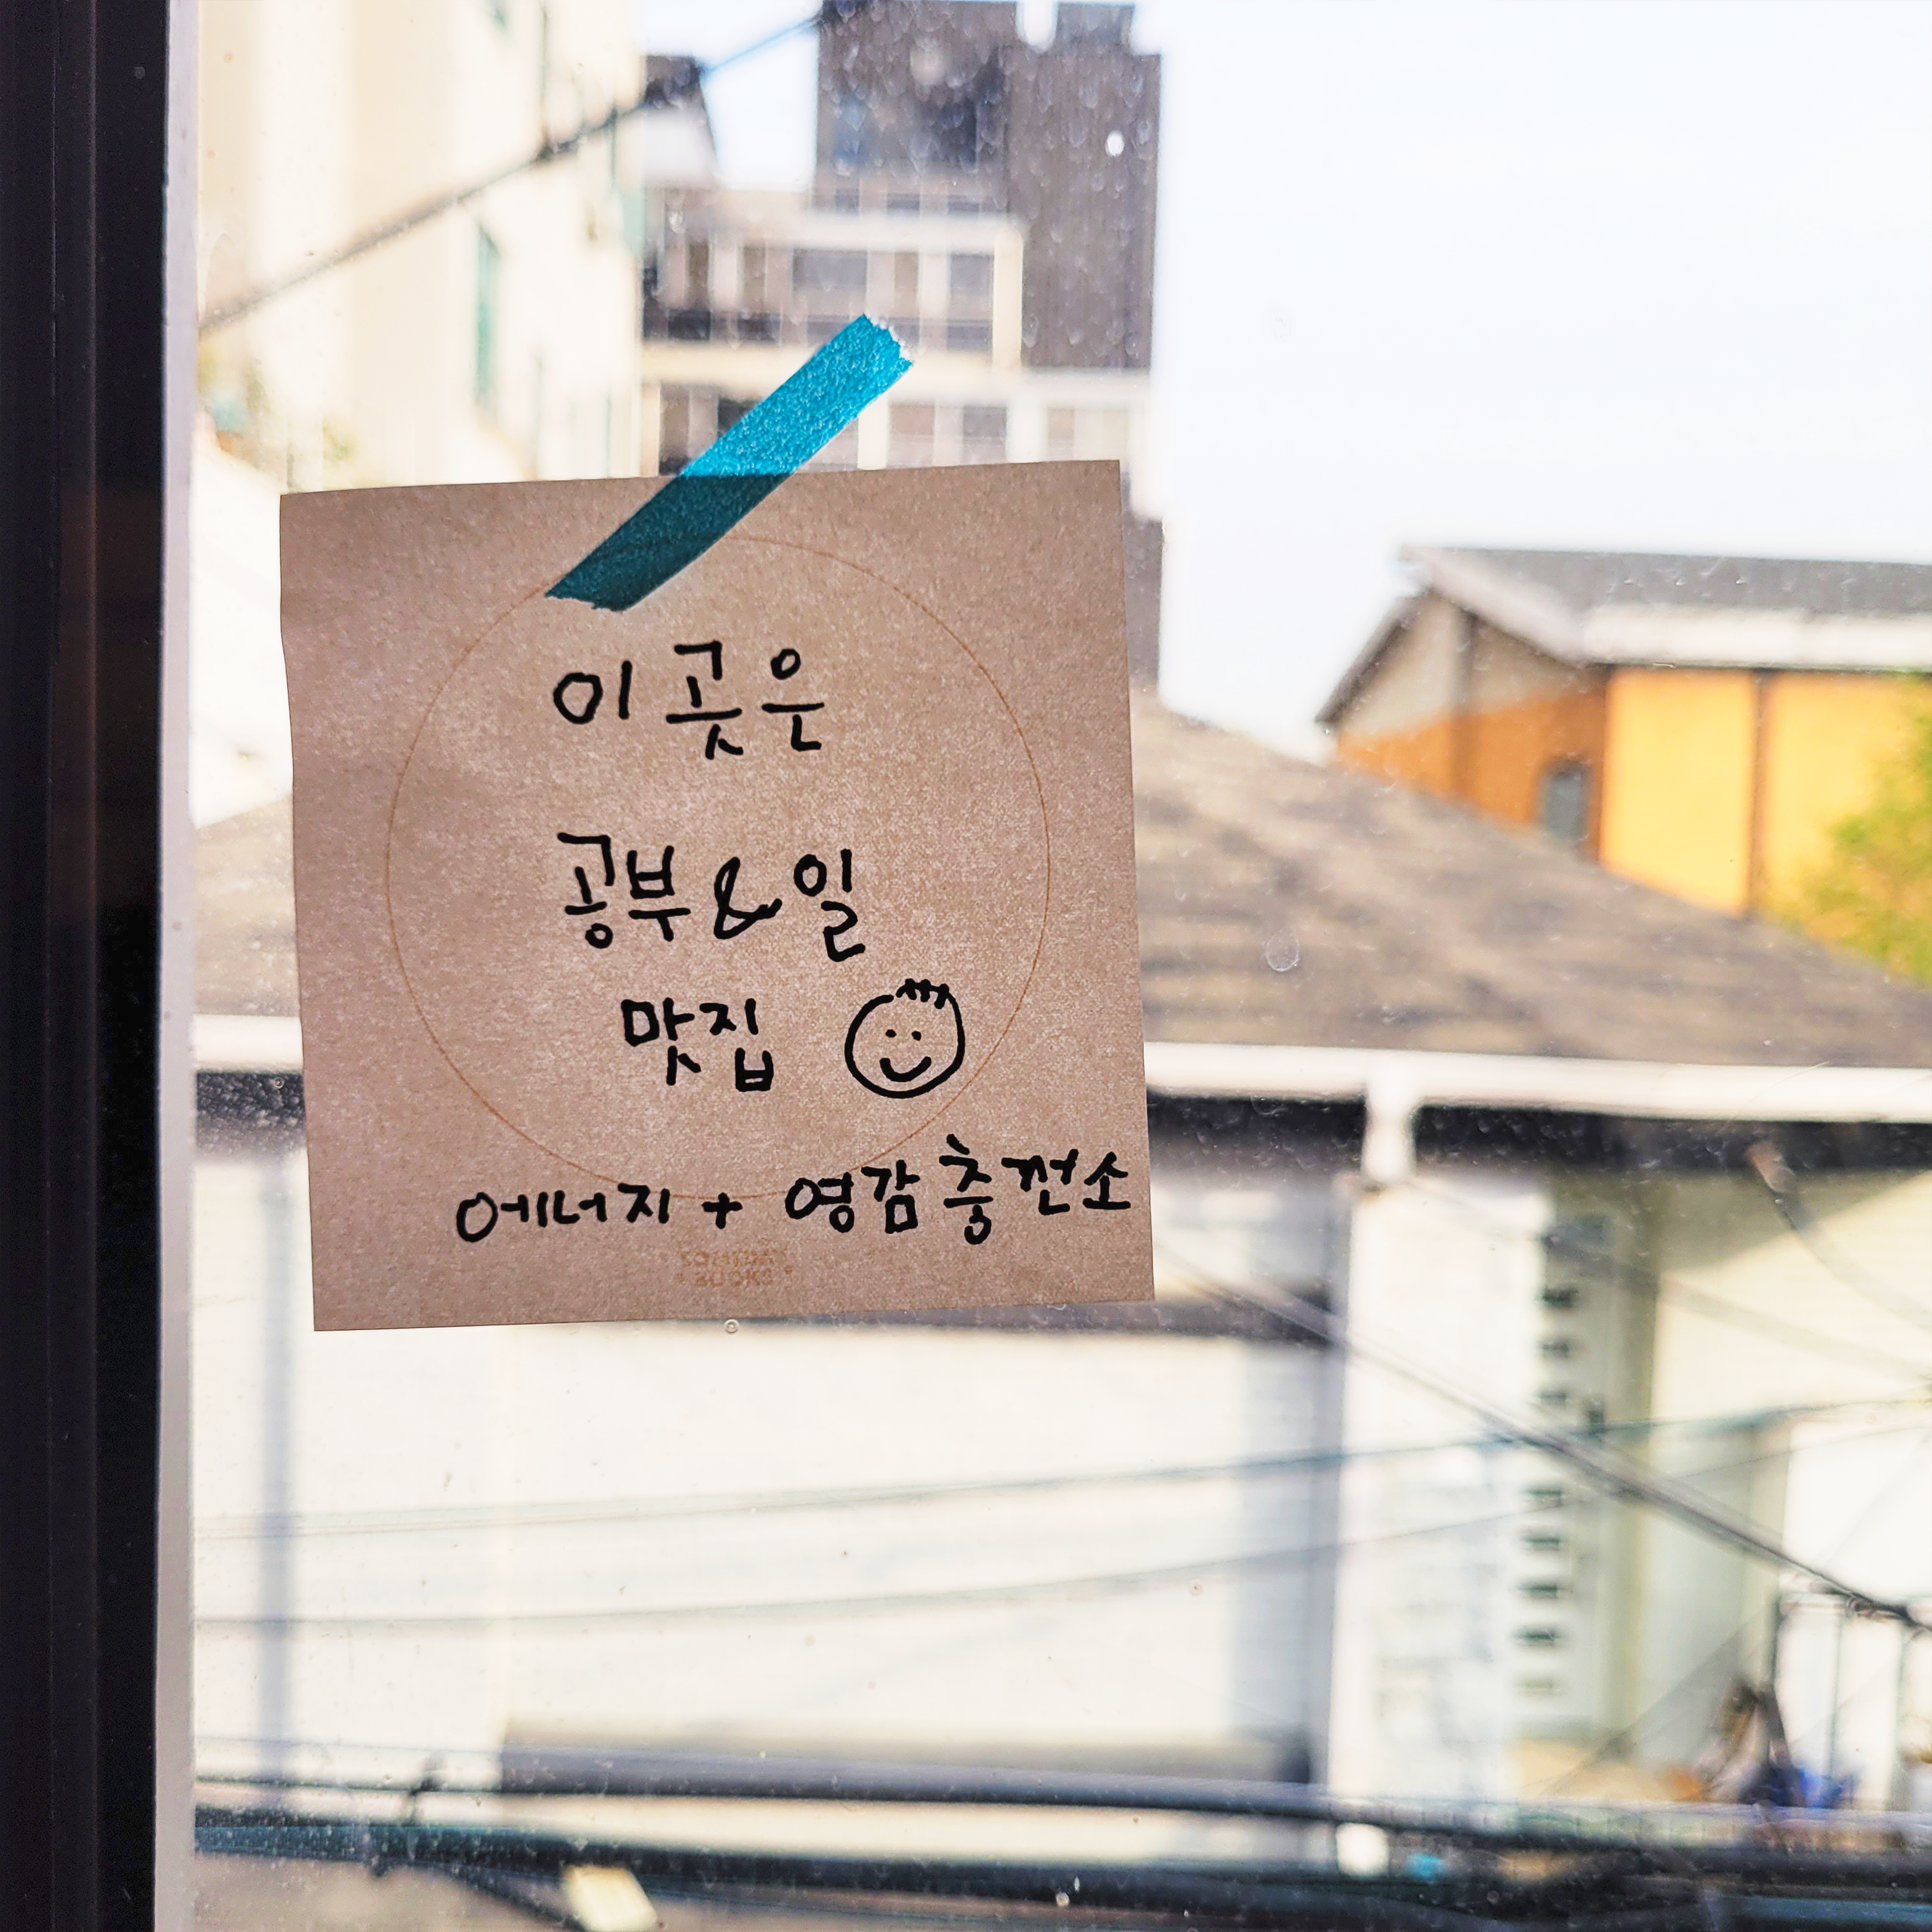 이 곳은
공부 & 일
맛집
에너지 + 영감 충전소
BOOKS